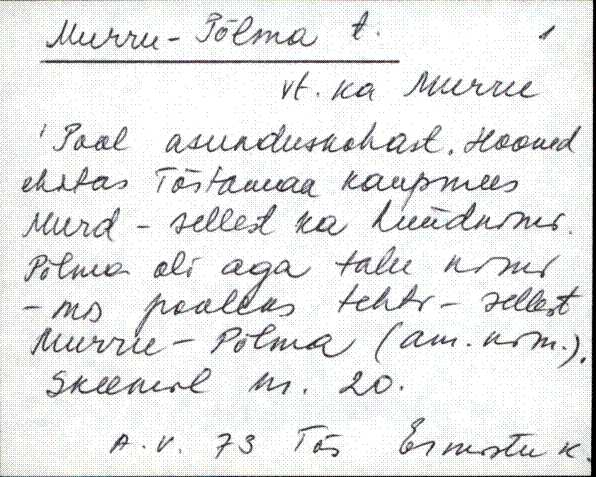 Murru-Põlma t. 1
vt. ka Murru
Pool asunduskohast. Hooned
ehitas Tõstamaa kaupmees
Murd - sellest ka hüüdnimi.
Põlma oli aga talu nimi
- mis pooleks tehti - sellest
Murru - Põlma (am. nim.).
Skeemil nr. 20.
A.V. 73 Tõs Ermistu k.